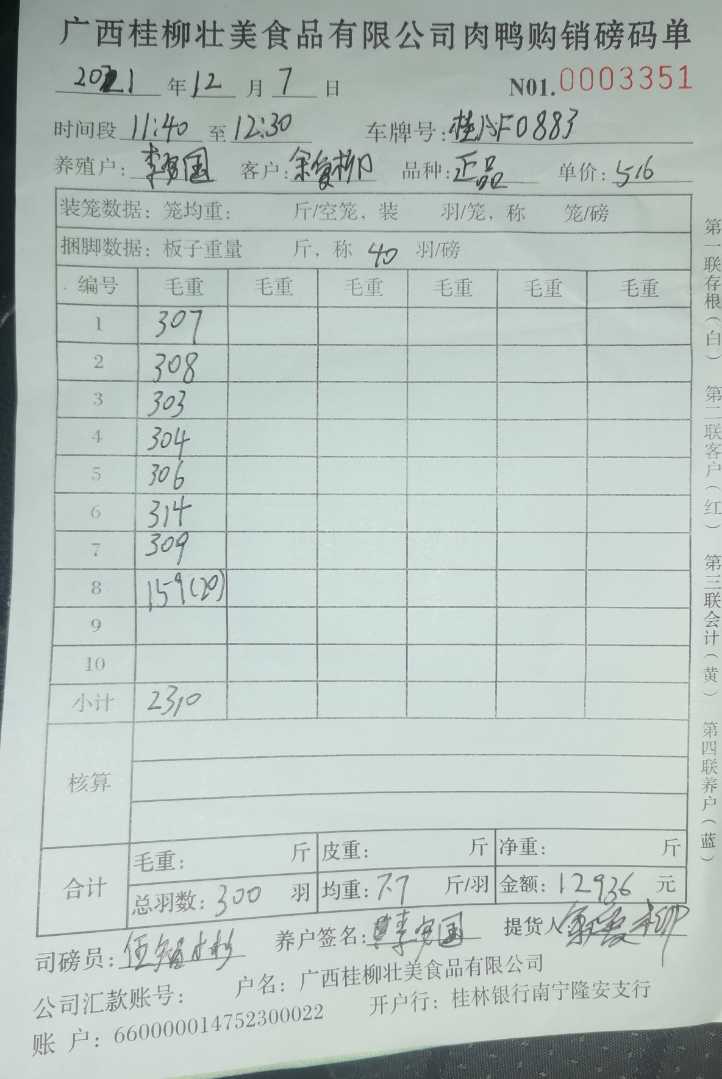 广西桂柳壮美食品有限公司肉鸭购销磅码单
2021年12月7日 N01.0003351
时间段11:40至12:30 车牌号:桂AF0883
养殖户: 国 客户: 柳 品种:正品 单价:5.6
装笼数据:笼均重: 斤/空笼,装 羽/笼,称 笼/磅
捆脚数据:板子重量 斤,称 40 羽/磅
编号 毛重 毛重 毛重 毛重 毛重 毛重
1 307
2 308
3 303
4 304
5 306
6 314
7 309
8 159(20)
9
10
小计 2310
核算
合计
毛重: 斤 皮重: 斤 净重: 斤
总羽数:300 羽 均重:7.7 斤/羽 金额:12936 元
司磅员: 养户签名: 国 提货人 柳
公司汇款账号: 户名:广西桂柳壮美食品有限公司
账 户:660000014752300022 开户行:桂林银行南宁隆安支行
第一联存根(白) 第二联客户(红) 第三联会计(黄) 第四联养户(蓝)